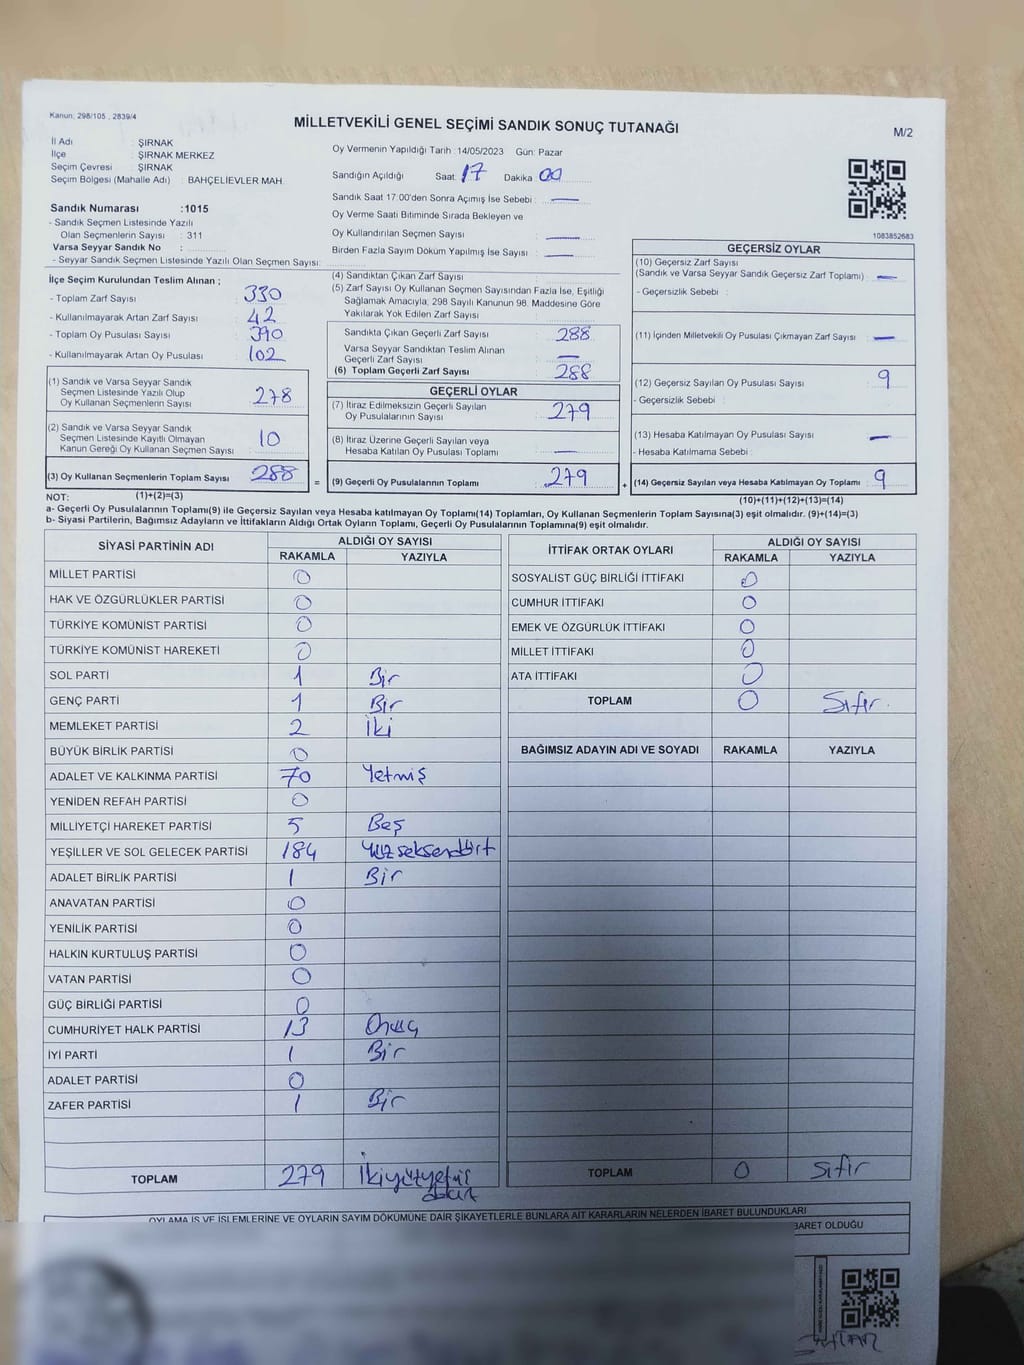 Kanun: 298/105 , 2839/4
MİLLETVEKİLİ GENEL SEÇİMİ SANDIK SONUÇ TUTANAĞI
M/2
İl Adı : ŞIRNAK
İlçe : ŞIRNAK MERKEZ
Seçim Çevresi : ŞIRNAK
Seçim Bölgesi (Mahalle Adı) : BAHÇELİEVLER MAH.
Sandık Numarası :1015
- Sandık Seçmen Listesinde Yazılı
Olan Seçmenlerin Sayısı : 311
Varsa Seyyar Sandık No :
- Seyyar Sandık Seçmen Listesinde Yazılı Olan Seçmen Sayısı:
Oy Vermenin Yapıldığı Tarih :14/05/2023 Gün: Pazar
Sandığın Açıldığı Saat: 17 Dakika 00
Sandık Saat 17:00'den Sonra Açılmış İse Sebebi : —
Oy Verme Saati Bitiminde Sırada Bekleyen ve
Oy Kullandırılan Seçmen Sayısı : —
Birden Fazla Sayım Döküm Yapılmış İse Sayısı : —
1083852683
İlçe Seçim Kurulundan Teslim Alınan ;
- Toplam Zarf Sayısı : 330
- Kullanılmayarak Artan Zarf Sayısı : 42
- Toplam Oy Pusulası Sayısı : 390
- Kullanılmayarak Artan Oy Pusulası : 102
(1) Sandık ve Varsa Seyyar Sandık
Seçmen Listesinde Yazılı Olup
Oy Kullanan Seçmenlerin Sayısı : 278
(2) Sandık ve Varsa Seyyar Sandık
Seçmen Listesinde Kayıtlı Olmayan
Kanun Gereği Oy Kullanan Seçmen Sayısı : 10
(3) Oy Kullanan Seçmenlerin Toplam Sayısı : 288 =
(4) Sandıktan Çıkan Zarf Sayısı :
(5) Zarf Sayısı Oy Kullanan Seçmen Sayısından Fazla İse, Eşitliği
Sağlamak Amacıyla, 298 Sayılı Kanunun 98. Maddesine Göre
Yakılarak Yok Edilen Zarf Sayısı :
Sandıkta Çıkan Geçerli Zarf Sayısı : 288
Varsa Seyyar Sandıktan Teslim Alınan
Geçerli Zarf Sayısı : —
(6) Toplam Geçerli Zarf Sayısı : 288
GEÇERLİ OYLAR
(7) İtiraz Edilmeksizin Geçerli Sayılan
Oy Pusulalarının Sayısı : 279
(8) İtiraz Üzerine Geçerli Sayılan veya
Hesaba Katılan Oy Pusulası Toplamı : —
(9) Geçerli Oy Pusulalarının Toplamı : 279 +
GEÇERSİZ OYLAR
(10) Geçersiz Zarf Sayısı :
(Sandık ve Varsa Seyyar Sandık Geçersiz Zarf Toplamı) : —
- Geçersizlik Sebebi :
(11) İçinden Milletvekili Oy Pusulası Çıkmayan Zarf Sayısı : —
(12) Geçersiz Sayılan Oy Pusulası Sayısı : 9
- Geçersizlik Sebebi :
(13) Hesaba Katılmayan Oy Pusulası Sayısı : —
- Hesaba Katılmama Sebebi :
(14) Geçersiz Sayılan veya Hesaba Katılmayan Oy Toplamı : 9
NOT: (1)+(2)=(3)
(10)+(11)+(12)+(13)=(14)
a- Geçerli Oy Pusulalarının Toplamı(9) ile Geçersiz Sayılan veya Hesaba katılmayan Oy Toplamı(14) Toplamları, Oy Kullanan Seçmenlerin Toplam Sayısına(3) eşit olmalıdır. (9)+(14)=(3)
b- Siyasi Partilerin, Bağımsız Adayların ve İttifakların Aldığı Ortak Oyların Toplamı, Geçerli Oy Pusulalarının Toplamına(9) eşit olmalıdır.
SİYASİ PARTİNİN ADI ALDIĞI OY SAYISI
RAKAMLA YAZIYLA
MİLLET PARTİSİ 0
HAK VE ÖZGÜRLÜKLER PARTİSİ 0
TÜRKİYE KOMÜNİST PARTİSİ 0
TÜRKİYE KOMÜNİST HAREKETİ 0
SOL PARTİ 1 Bir
GENÇ PARTİ 1 Bir
MEMLEKET PARTİSİ 2 İki
BÜYÜK BİRLİK PARTİSİ 0
ADALET VE KALKINMA PARTİSİ 70 Yetmiş
YENİDEN REFAH PARTİSİ 0
MİLLİYETÇİ HAREKET PARTİSİ 5 Beş
YEŞİLLER VE SOL GELECEK PARTİSİ 184 Yüzseksendört
ADALET BİRLİK PARTİSİ 1 Bir
ANAVATAN PARTİSİ 0
YENİLİK PARTİSİ 0
HALKIN KURTULUŞ PARTİSİ 0
VATAN PARTİSİ 0
GÜÇ BİRLİĞİ PARTİSİ 0
CUMHURİYET HALK PARTİSİ 13 Onüç
İYİ PARTİ 1 Bir
ADALET PARTİSİ 0
ZAFER PARTİSİ 1 Bir
TOPLAM 279 İkiyüzyetmiş
dokuz
İTTİFAK ORTAK OYLARI ALDIĞI OY SAYISI
RAKAMLA YAZIYLA
SOSYALİST GÜÇ BİRLİĞİ İTTİFAKI 0
CUMHUR İTTİFAKI 0
EMEK VE ÖZGÜRLÜK İTTİFAKI 0
MİLLET İTTİFAKI 0
ATA İTTİFAKI 0
TOPLAM 0 Sıfır
BAĞIMSIZ ADAYIN ADI VE SOYADI RAKAMLA YAZIYLA
TOPLAM 0 Sıfır
OYLAMA İŞ VE İŞLEMLERİNE VE OYLARIN SAYIM DÖKÜMÜNE DAİR ŞİKAYETLERLE BUNLARA AİT KARARLARIN NELERDEN İBARET BULUNDUKLARI
BARET OLDUĞU